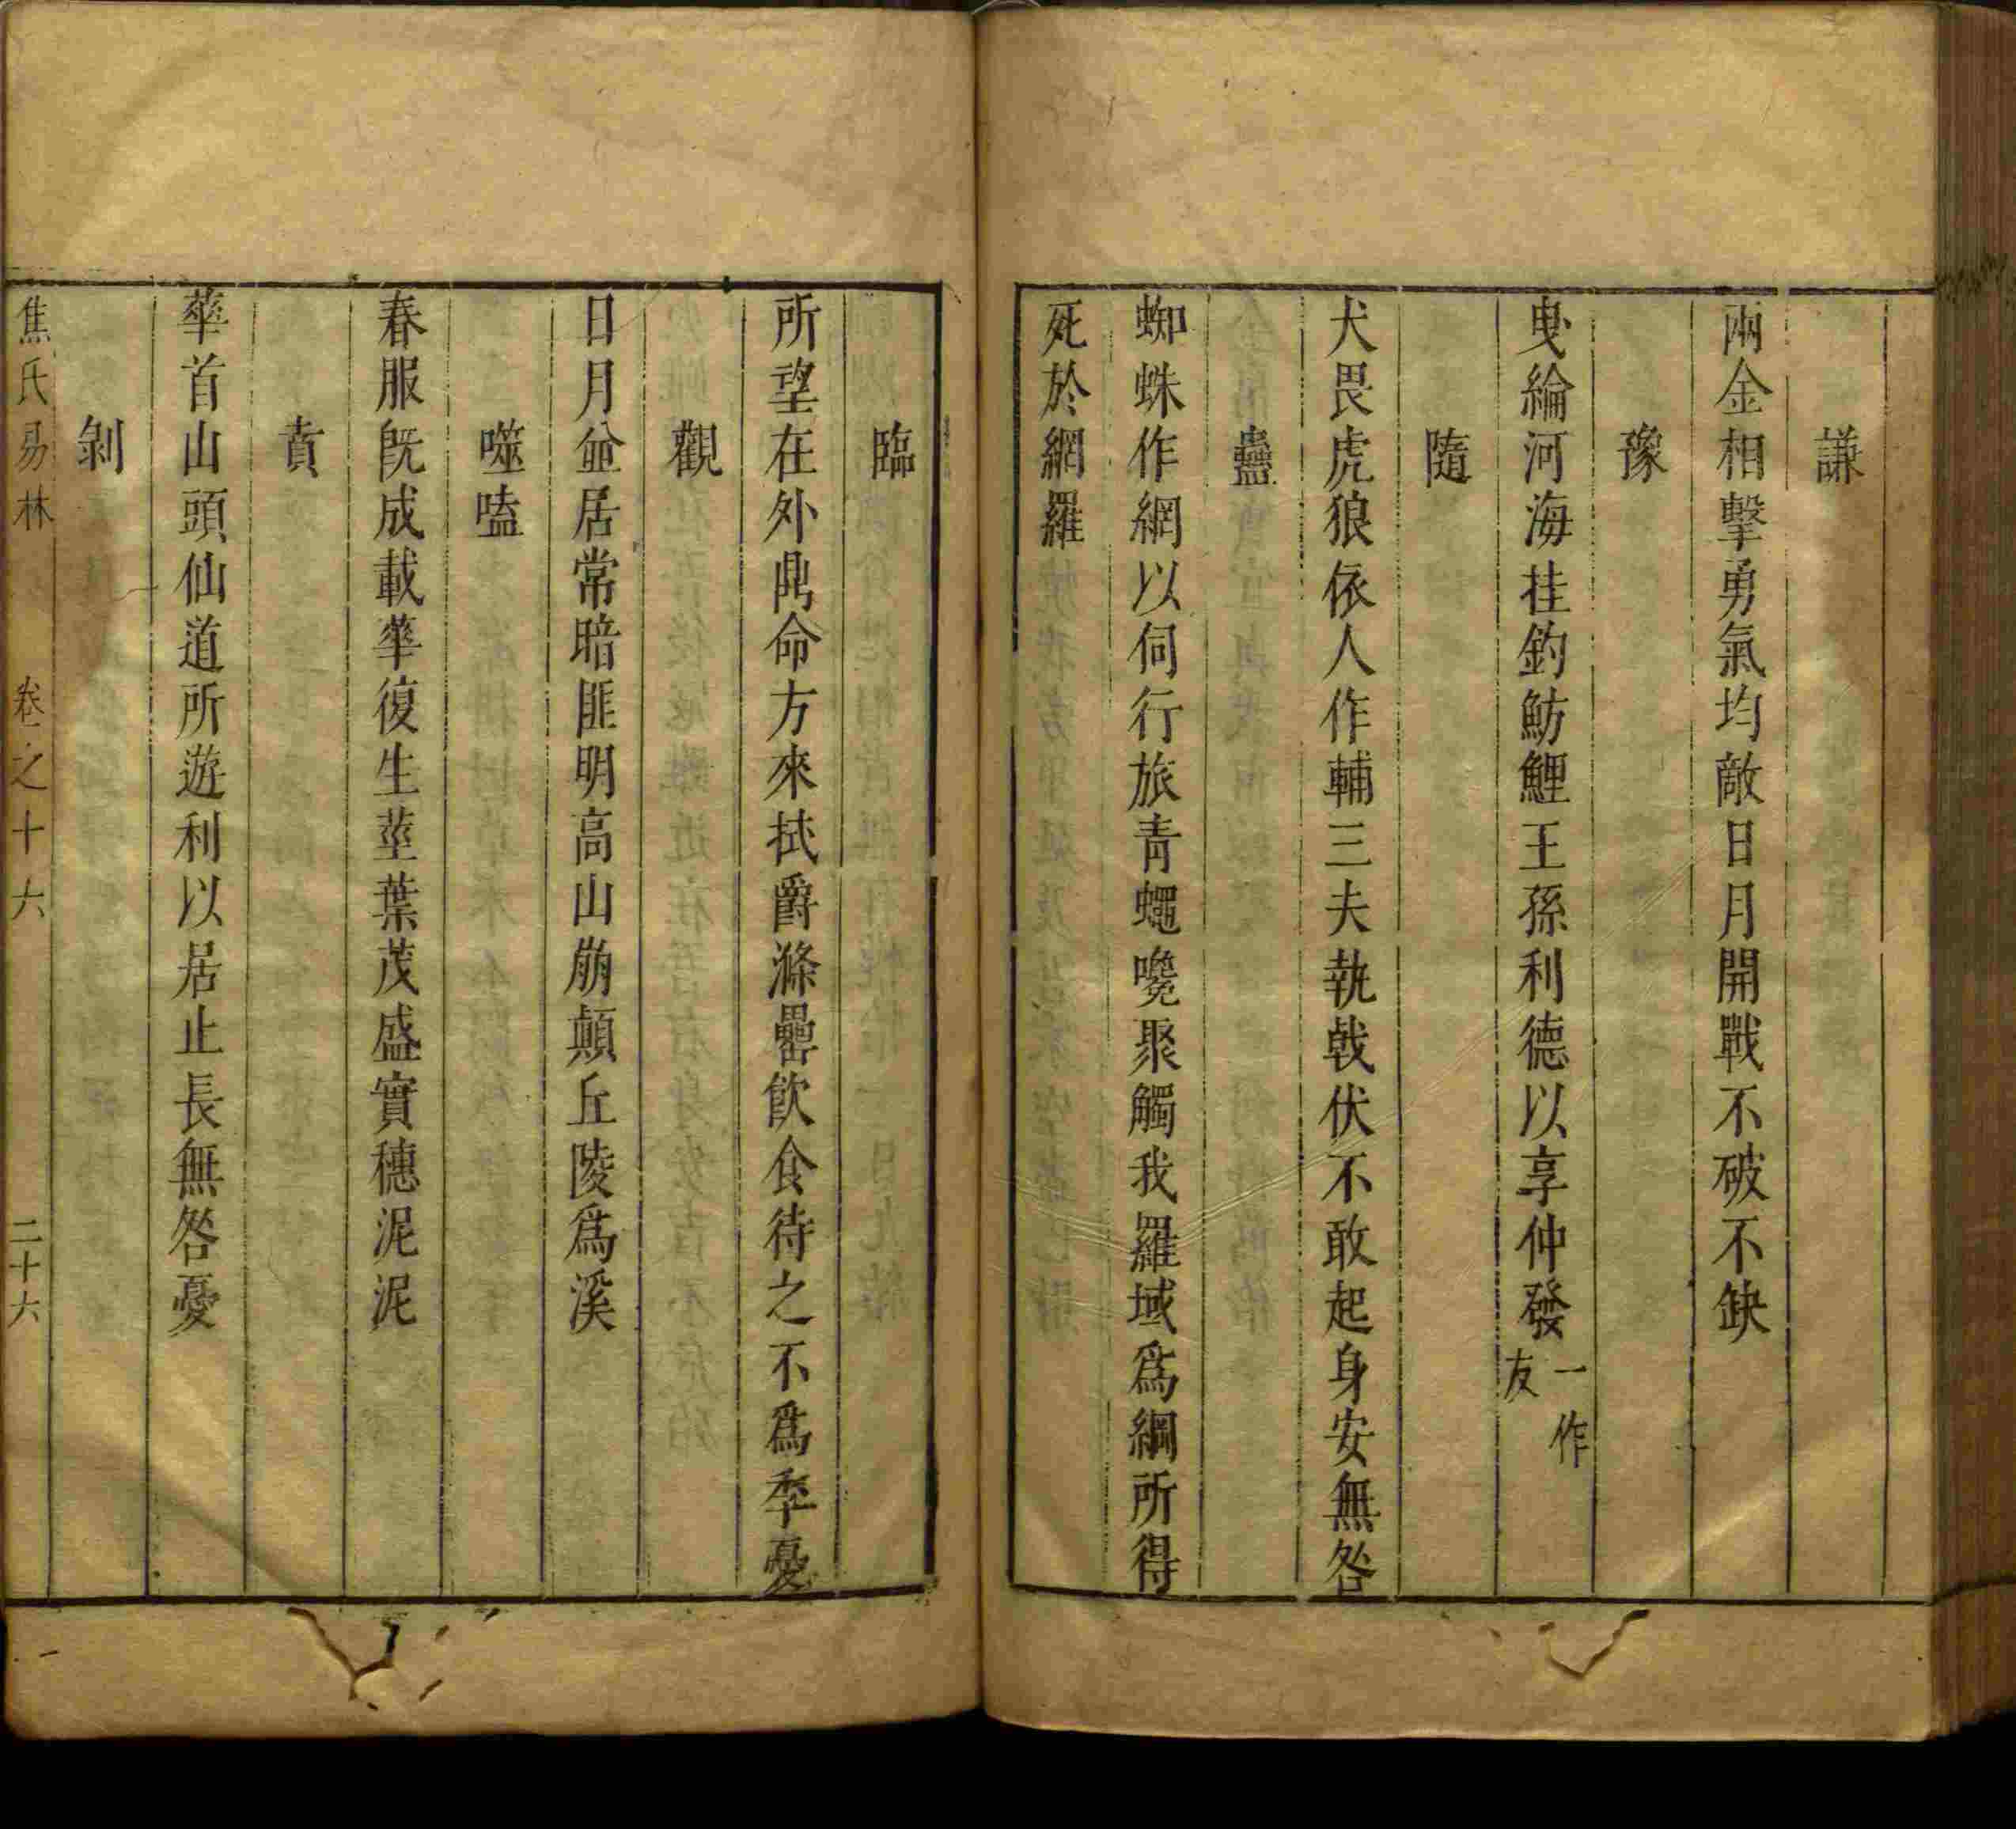 謙
兩金相擊勇氣均敵日月開戰不破不缺
豫
曳綸河海桂釣魴鯉王孫利德以享仲發一作友
隨
犬畏虎狼依人作輔三夫執戟伏不敢起身安無咎
蠱
蜘蛛作網以伺行旅青蠅嚵聚觸我羅域爲網所得
死於網羅
臨
所望在外鼎命方來拭爵滌罍飲食待之不爲季憂
觀
日月並居常暗匪明高山崩顛丘陵爲溪
噬嗑
春服旣成載華復生莖葉茂盛實穗泥泥
賁
華首山頭仙道所遊利以居止長無咎憂
剝
焦氏易林 卷之十六 二十六